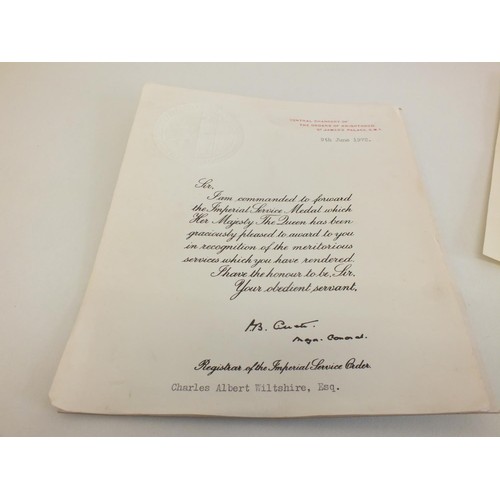 CENTRAL CHANCERY OF
THE ORDERS OF KNIGHTHOOD
ST JAMES'S PALACE, S.W.1
9th June 1972.
Sir,
I am commanded to forward
the Imperial Service Medal which
Her Majesty The Queen has been
graciously pleased to award to you
in recognition of the meritorious
services which you have rendered.
I have the honour to be, Sir,
Your obedient servant,
Major General
Registrar of the Imperial Service Order
Charles Albert Wiltshire, Esq.